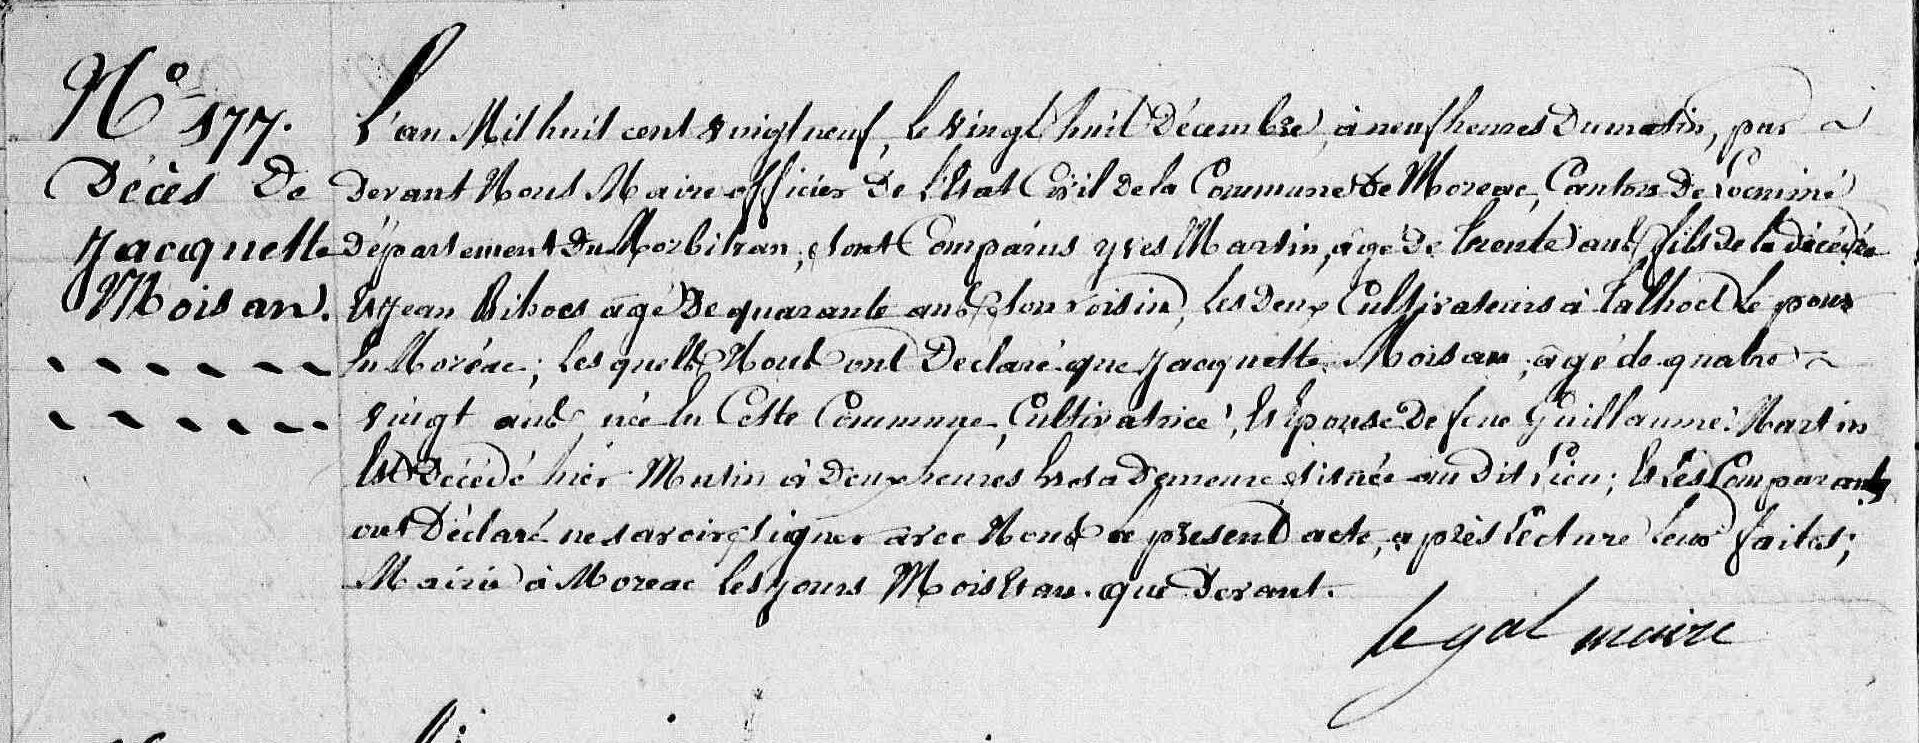 N° 177.
Décès De
Jacquette
Moisan.
L'an Mil huit cent vingt neuf, le vingt huit Décembre, à neuf heures Du matin, par
Devant Nous Maire officier De l'Etat Civil De la Commune De Moreac, Canton De Locminé
Département Du Morbihan, sont Comparus yves Martin, âgé De trente ans fils de la décédée
Et Jean Bihoes âgé De quarante ans son voisin, les Deux Cultivateurs à Talhoet le
En Moréac; les quels Nous ont Declaré que Jacquette Moisan, âgé de quatre
vingt ans, née En Cette Commune, Cultivatrice, Epouse De feue Guillaume Martin
Est Décédé hier Matin à Deux heures En sa Demeure située au Dit Lieu; Et Les Comparants
ont Déclaré ne savoir signer avec Nous le présent acte, après Lecture leur faites;
Mairie à Moreac les jours Mois Et an que Devant.
le gal maire